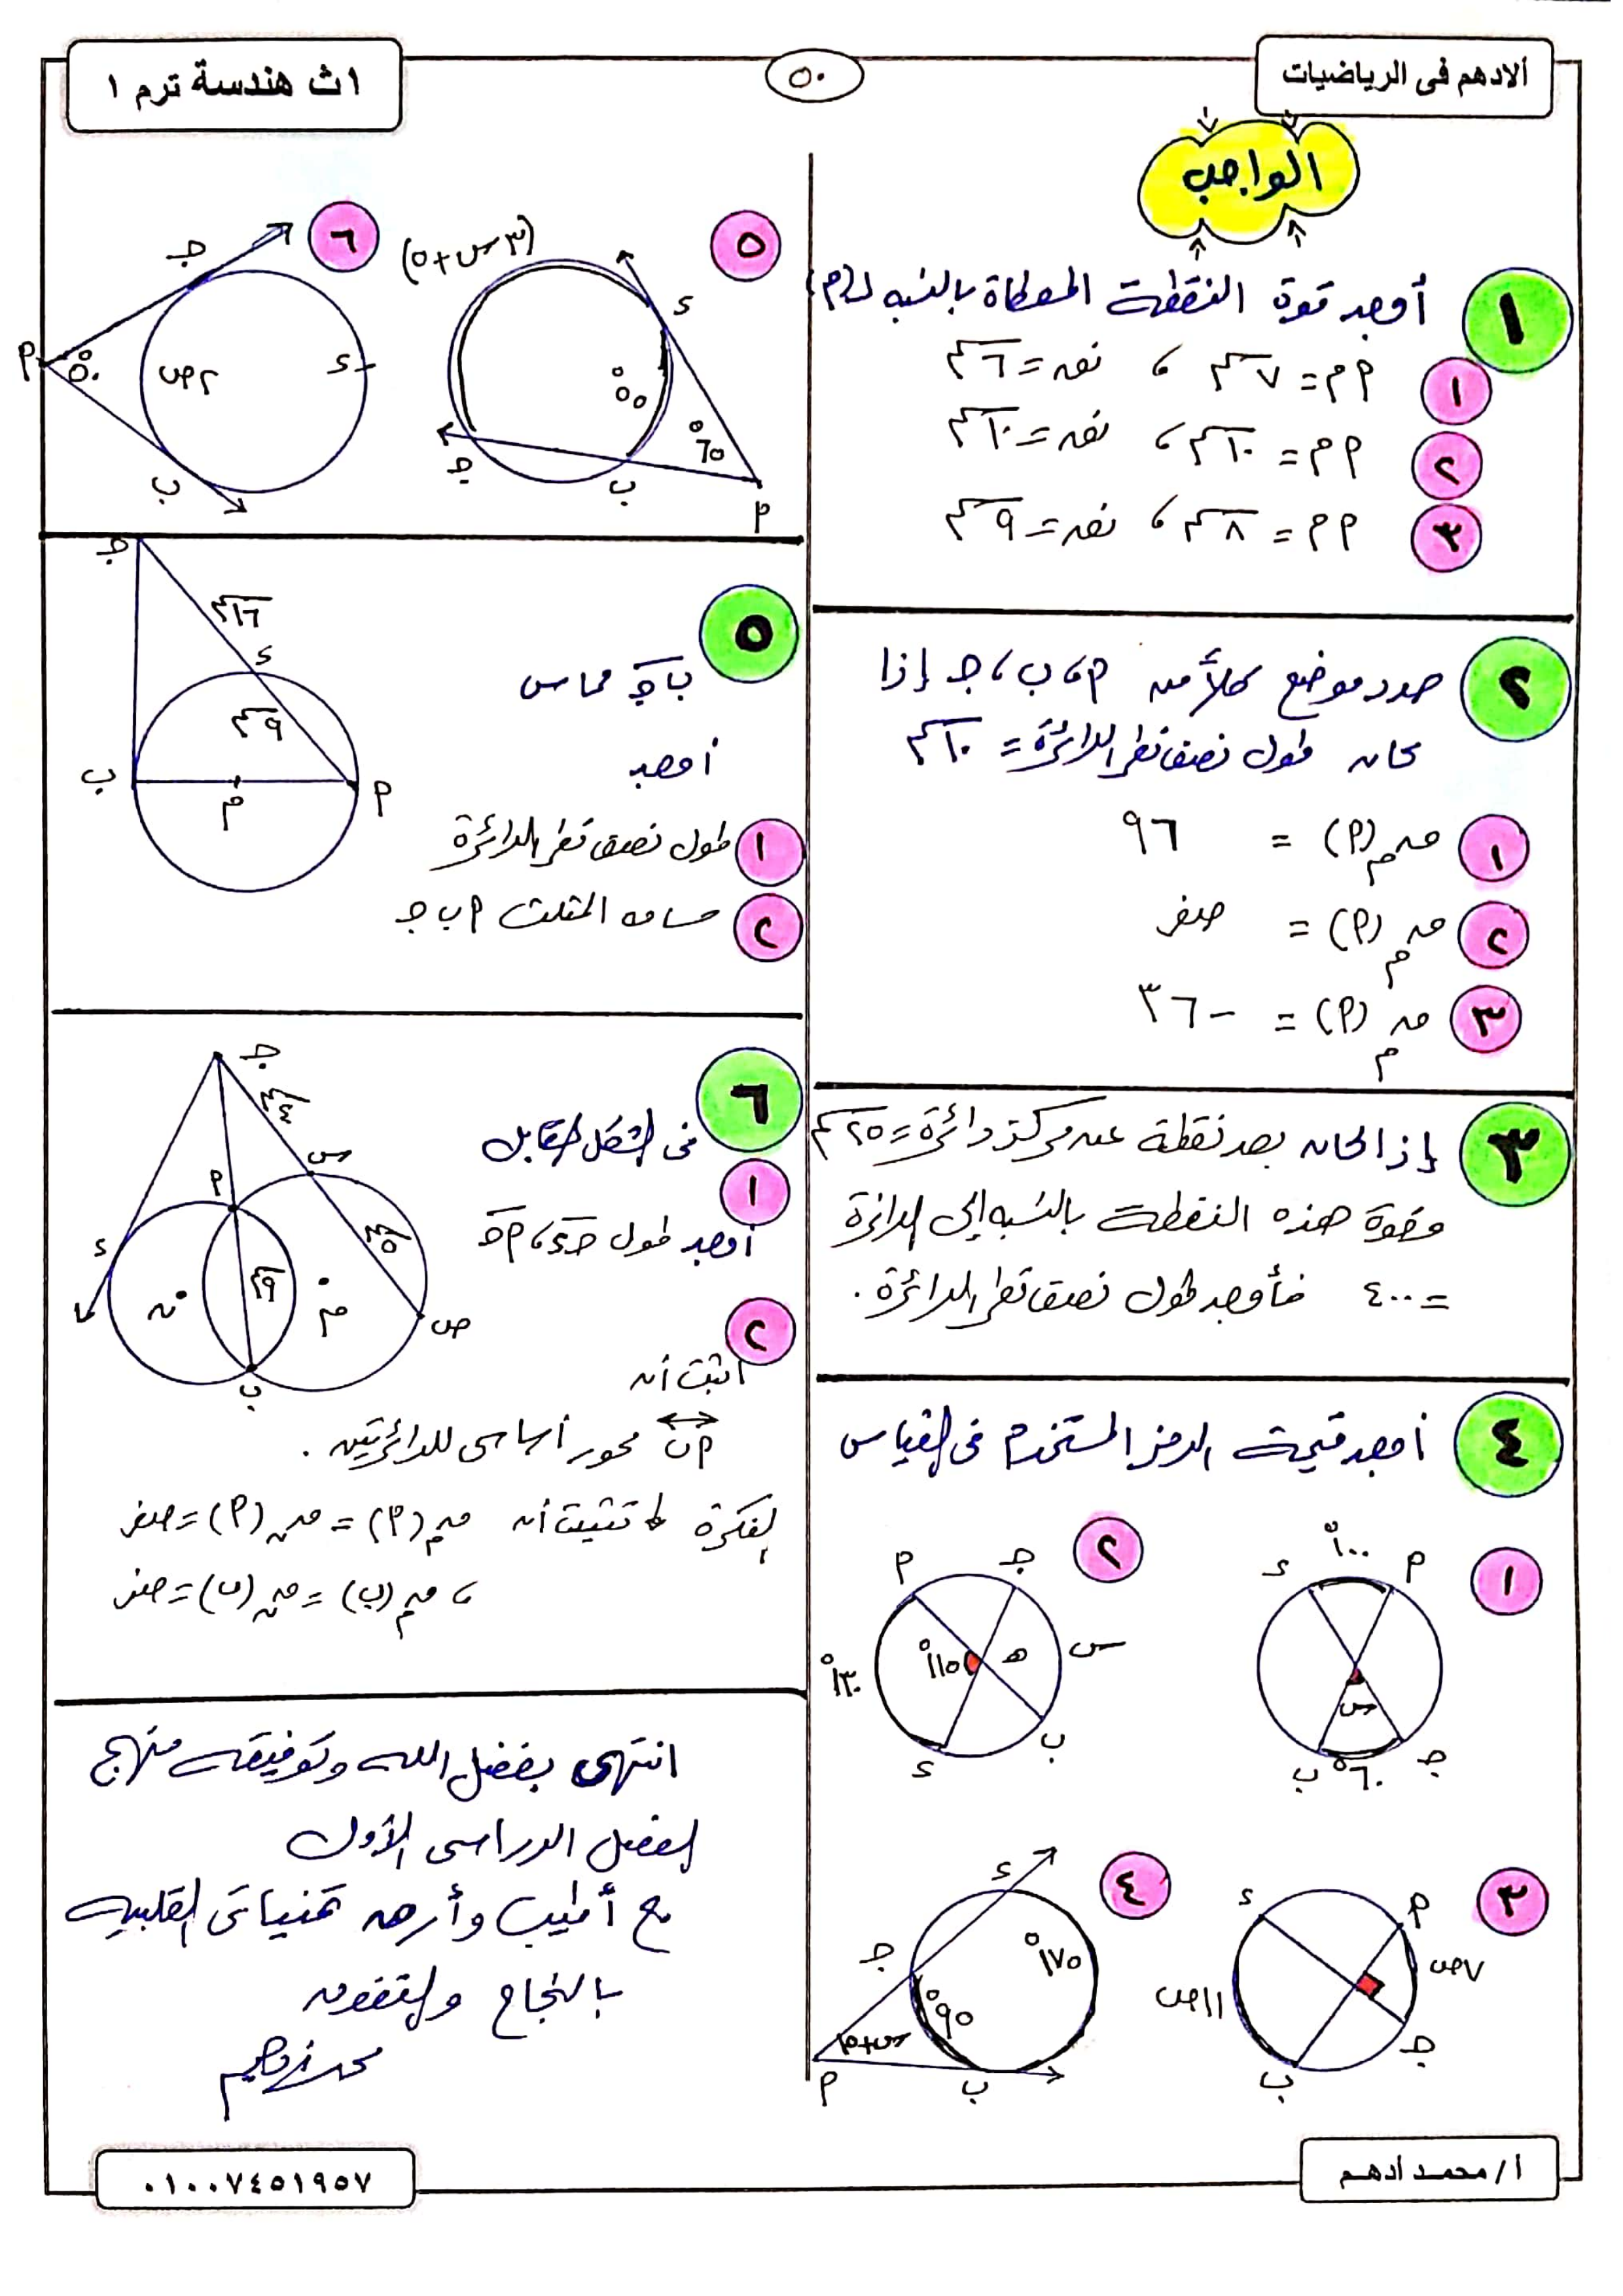 ألادهم فى الرياضيات
٥٠
١ث هندسة ترم ١
الواجب
١ أوجد قوة النقطة المعطاة بالنسبه لـ(م)
١ ٢م = ٧سم ، نقه = ٦سم
٢ ٢م = ١٠سم ، نقه = ١٠سم
٣ ٢م = ٨سم ، نقه = ٩سم
٢ حدد موضع كلاً من ٢، ب، جـ إذا
كان طول نصف قطر الدائرة = ١٠سم
١ قم(٢) = ٩٦
٢ قم(٢) = صفر
٣ قم(٢) = -٣٦
٣ إذا كان بعد نقطة عن مركز دائرة = ٢٥سم
وقوة هذه النقطة بالنسبه إلى الدائرة
= ٤٠٠ فأوجد طول نصف قطر الدائرة.
٤ أوجد قيمة الرمز المستخدم فى القياس
١
ء ١٠٠° ٢
س
ب ٦٠° جـ
٢
٢ جـ
١٣٠° ١١٥° هـ س
ء ب
٣
ء ٢
٧ص
١١ص
ب جـ
٤
ء
جـ ١٧٥°
٩٥°
س+٥
٢ ب
٥
(٣س+٥)
ء
٥٥°
٦٥°
جـ ب ٢
٦
جـ
٢ ٥٠° ٢ص ء
ب
٥ ب جـ مماس
أوجد
١ طول نصف قطر الدائرة
٢ مساحه المثلث ٢ ب جـ
جـ
١٦سم
ء
٩سم
ب م ٢
٦ فى الشكل المقابل
١ أوجد طول جـ ء ، ٢ جـ
٢ اثبت أن
٢ ب محور أساسى للدائرتين.
الفكرة تثبت أن قم(٢) = قن(٢) = صفر
، قم(ب) = قن(ب) = صفر
جـ
٤سم
س
٢
٥سم
ء
٩سم
ن م ص
ب
انتهى بفضل الله وتوفيقه منهج
الفصل الدراسى الأول
مع أطيب وأرق تمنياتى القلبيه
بالنجاح والتفوق
محمد أدهم
أ/ محمـد أدهـم
٠١٠٠٧٤٥١٩٥٧